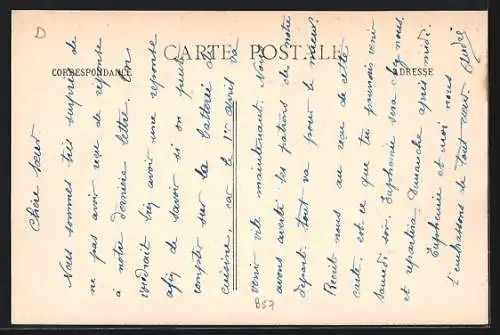 D
CARTE POSTALE
CORRESPONDANCE
ADRESSE
Chère sœur.
Nous sommes très surpris de
ne pas avoir reçu de réponse
à notre dernière lettre. On
voudrait bien avoir une réponse
afin de savoir si on peut
compter sur la batterie de
cuisine, car le 1er avril va
venir vite maintenant. Nous
avons averti les patrons de notre
départ. tout va pour le mieux.
Récrit nous au reçu de cette
carte. est ce que tu pourrais venir
samedi soir. Euphémie sera chez nous.
et repartira Dimanche après midi.
Euphémie et moi nous
t'embrassons de tout cœur.
B57